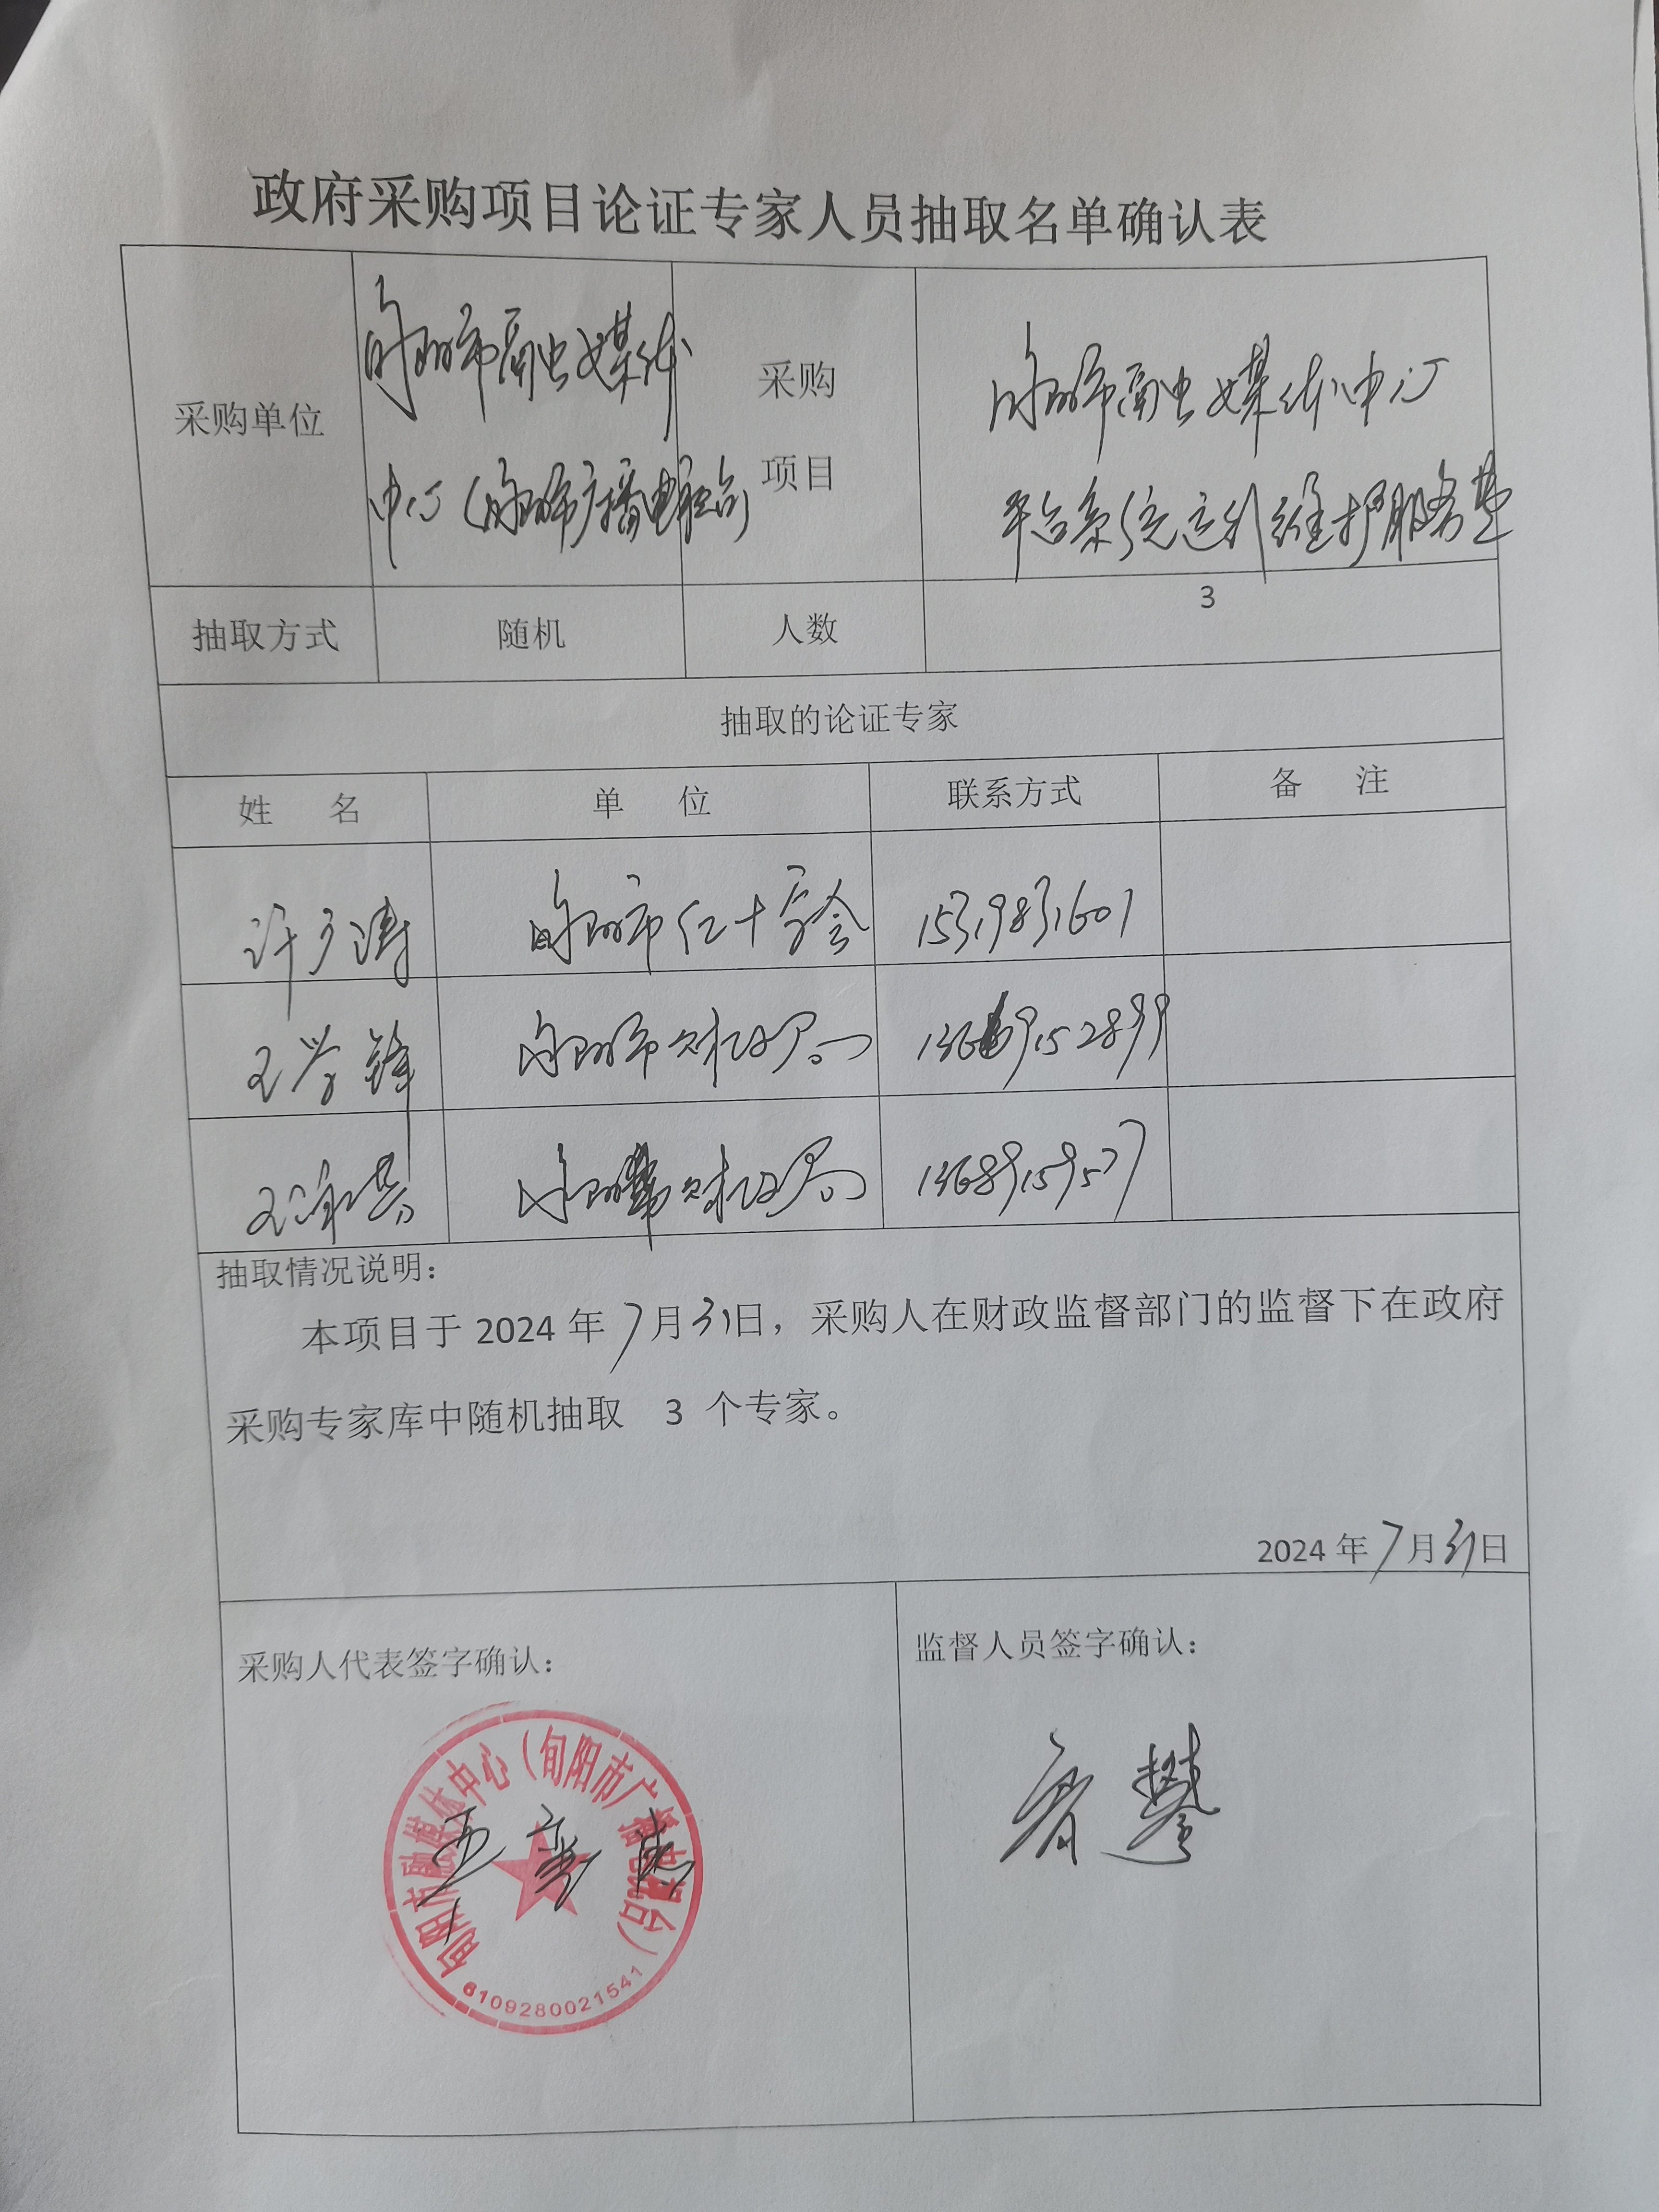 政府采购项目论证专家人员抽取名单确认表
采购单位
旬阳市融媒体
中心（旬阳市广播电视台）
采购
项目
旬阳市融媒体中心
平台系统运行维护服务费
抽取方式 随机 人数 3
抽取的论证专家
姓 名 单 位 联系方式 备 注
许广涛 旬阳市红十字会 15319831601
王学锋 旬阳市财政局 13669152899
旬阳市财政局 13689159577
抽取情况说明：
本项目于 2024 年 7月31日，采购人在财政监督部门的监督下在政府
采购专家库中随机抽取 3 个专家。
2024 年7月31日
采购人代表签字确认：
监督人员签字确认：
旬阳市融媒体中心（旬阳市广播电视台）
6109280021541